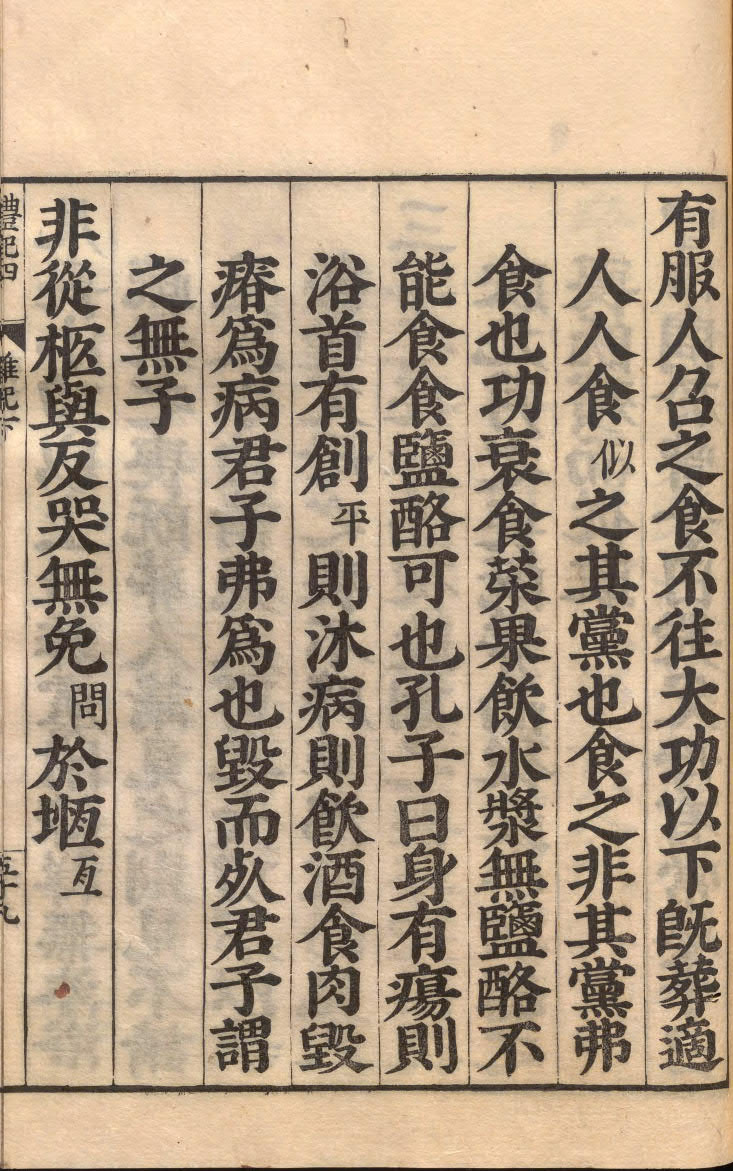 有服人召之食不往大功以下旣葬適
人人食似之其黨也食之非其黨弗
食也功衰食菜果飮水漿無鹽酪不
能食食鹽酪可也孔子曰身有瘍則
浴首有創平則沐病則飮酒食肉毀
瘠爲病君子弗爲也毀而死君子謂
之無子
非從柩與反哭無免問於堩亙
禮記四
雜記下
五十九